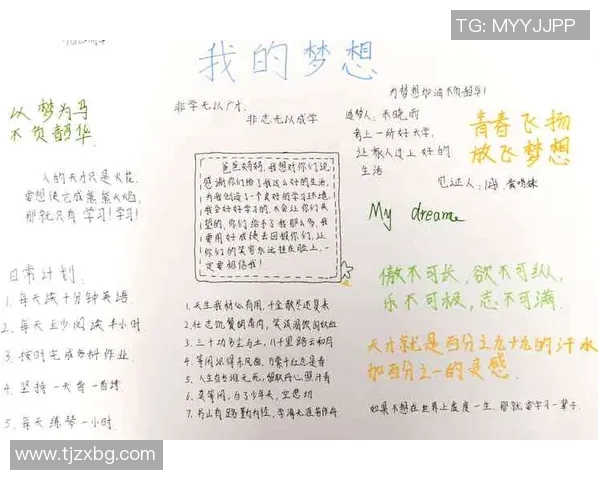 TG: MYYJJPP
我的梦想
为梦想加油 不负韶华!
以梦为马
不负韶华
非学无以广才
非志无以成学
追梦人:
考上一所好大学,
让家人过上好的
生活
见证人:
青春飞扬
放飞梦想
人的天才只是火花,
要想使它成熊熊火焰,
那就只有 学习!学习!
爸爸妈妈,我想对你们说,
感谢你们给了我这么好的生活,
为我创造了一个良好的学习环境,
我会好好学习的,不会让你们失
望的,你们给予了我那么多,我
要用好成绩去回报你们,让
你们的笑容永远挂在脸上,一
定要相信我!
My dream
日常计划
1.每天读十分钟英语.
2.每天至少阅读半小时
3.按时完成各科作业
4.坚持一天背一首诗
5.每天练琴一小时.
1.天生我材必有用,千金散尽还复来
2.壮志饥餐胡虏肉,笑谈渴饮匈奴血
3.三十功名尘与土,八千里路云和月
4.等闲识得东风面,万紫千红总是春
5.人生自古谁无死,留取丹心照汗青
6.莫等闲,白了少年头,空悲切
7.书山有路勤为径,学海无涯苦作舟
傲不可长,欲不可纵,
乐不可极,志不可满.
天才就是百分之九十九的汗水
加百分之一的灵感
如果不想在世界上虚度一生,那就要学习一辈子.
www.tjzxbg.com